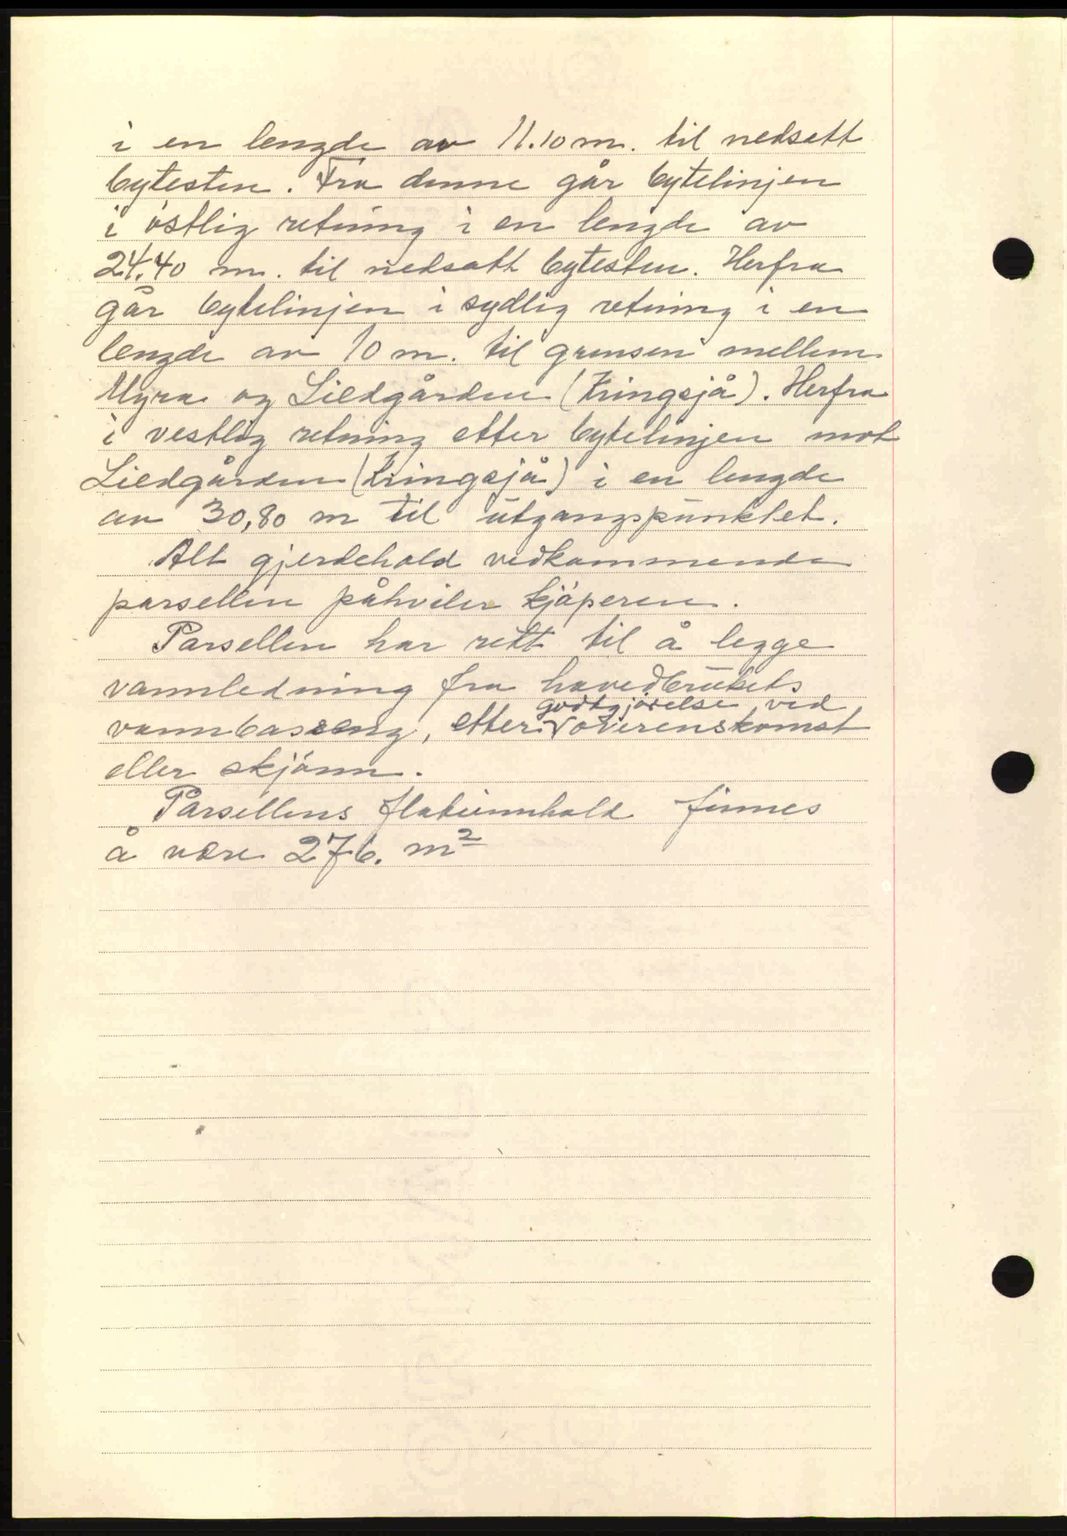 i en lengde av 11.10 m. til nedsatt
bytesten. Fra denne går bytelinjen
i östlig retning i en lengde av
24.40 m. til nedsatt bytesten. Herfra
går bytelinjen i sydlig retning i en
lengde av 10 m. til grensen mellem
Myra og Liedgården (Kringsjå). Herfra
i vestlig retning etter bytelinjen mot
Liedgården (Kringsjå) i en lengde
av 30,80 m til utgangspunktet.
Alt gjerdehold vedkommende
parsellen påhviler kjöperen.
Parsellen har rett til å legge
vannledning fra hovedbrukets
godtgjörelse ved
vannbasseng, etter overenskomst
eller skjönn.
Parsellens flateinnhold finnes
å være 276. m²